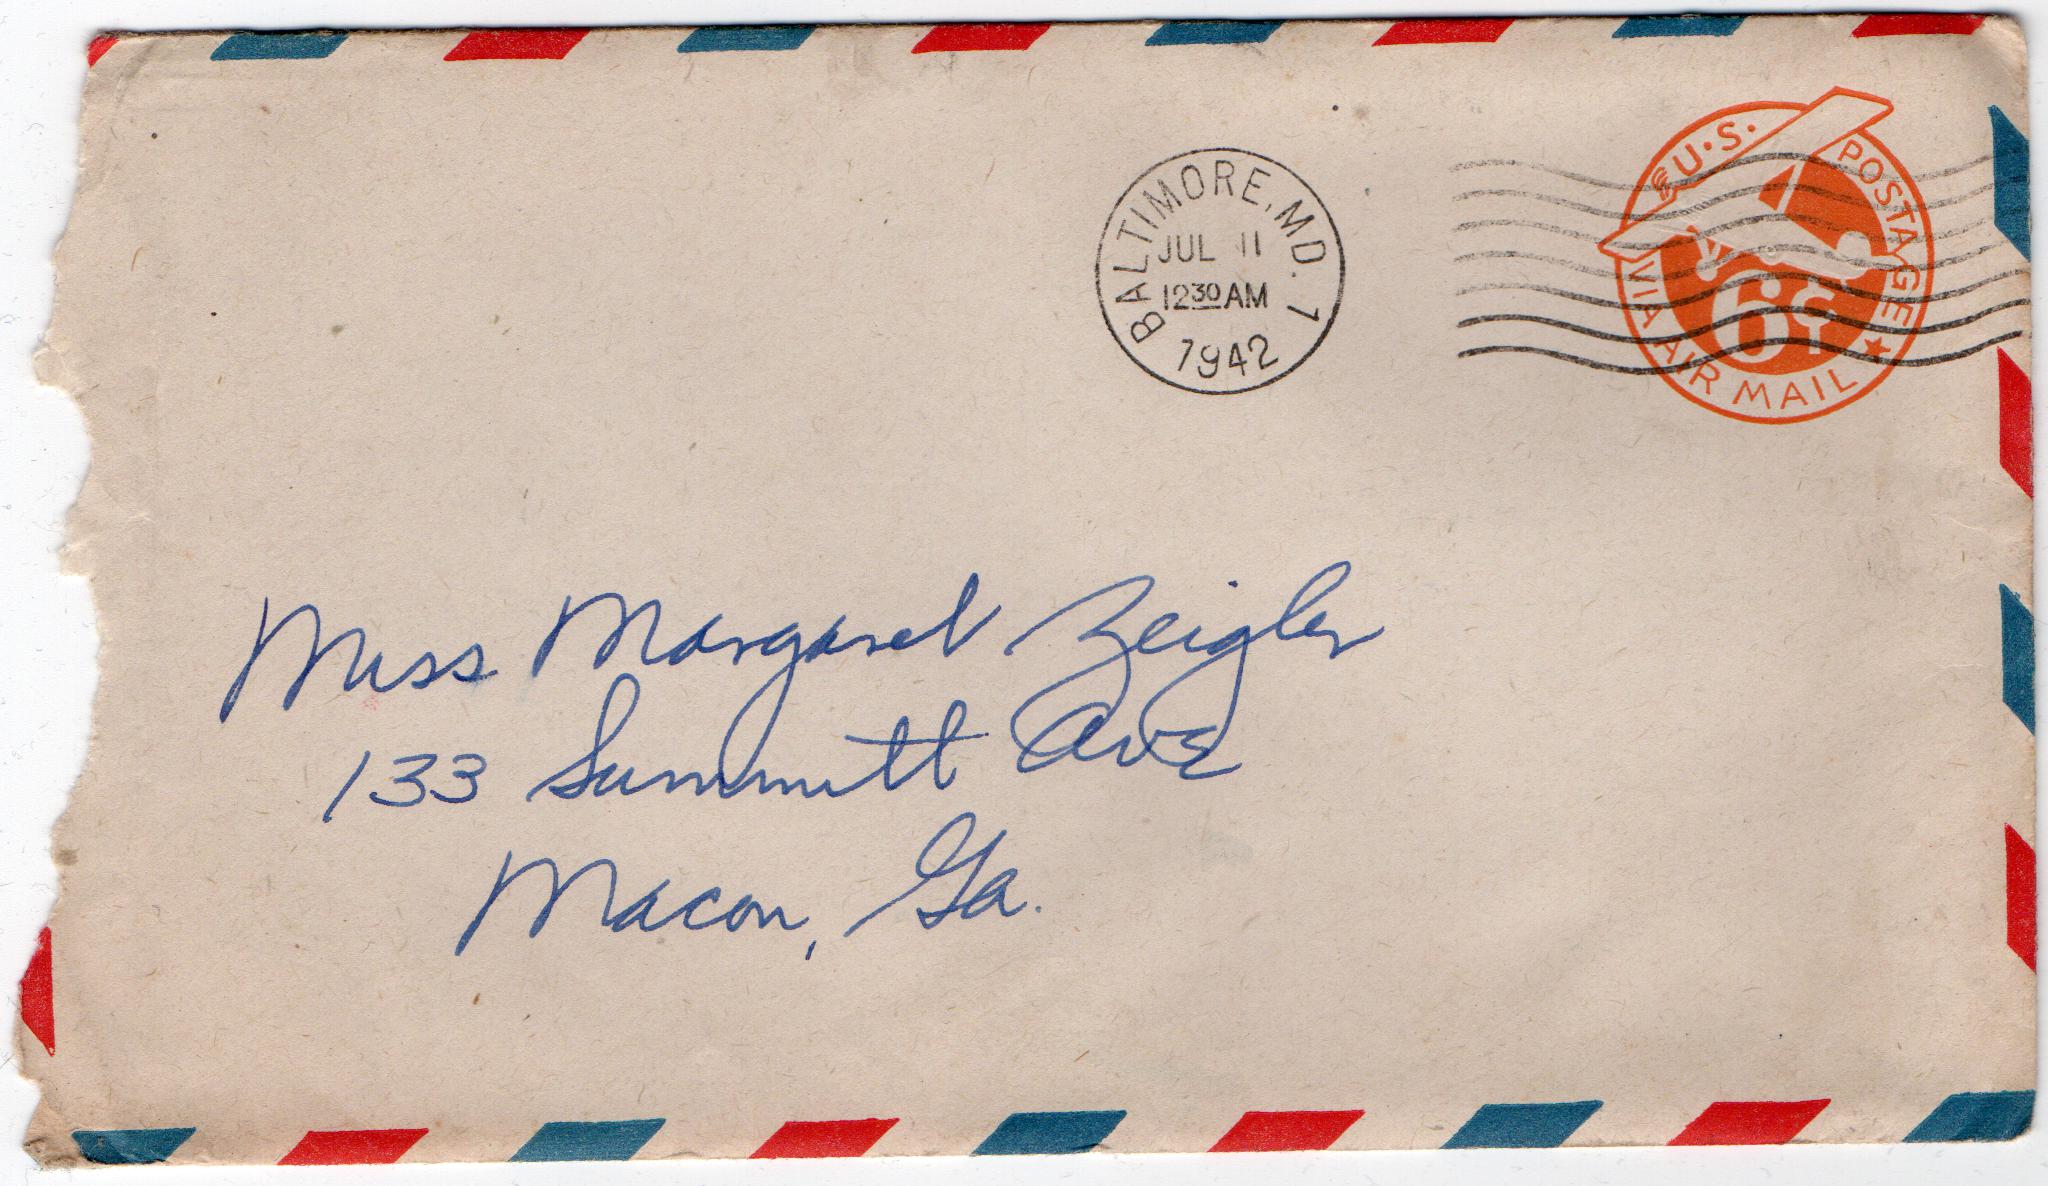 BALTIMORE, MD. 1
JUL 11
12 30 AM
1942
U.S. POSTAGE
VIA AIR MAIL
6¢
Miss Margaret Zeigler
133 Summitt Ave
Macon, Ga.